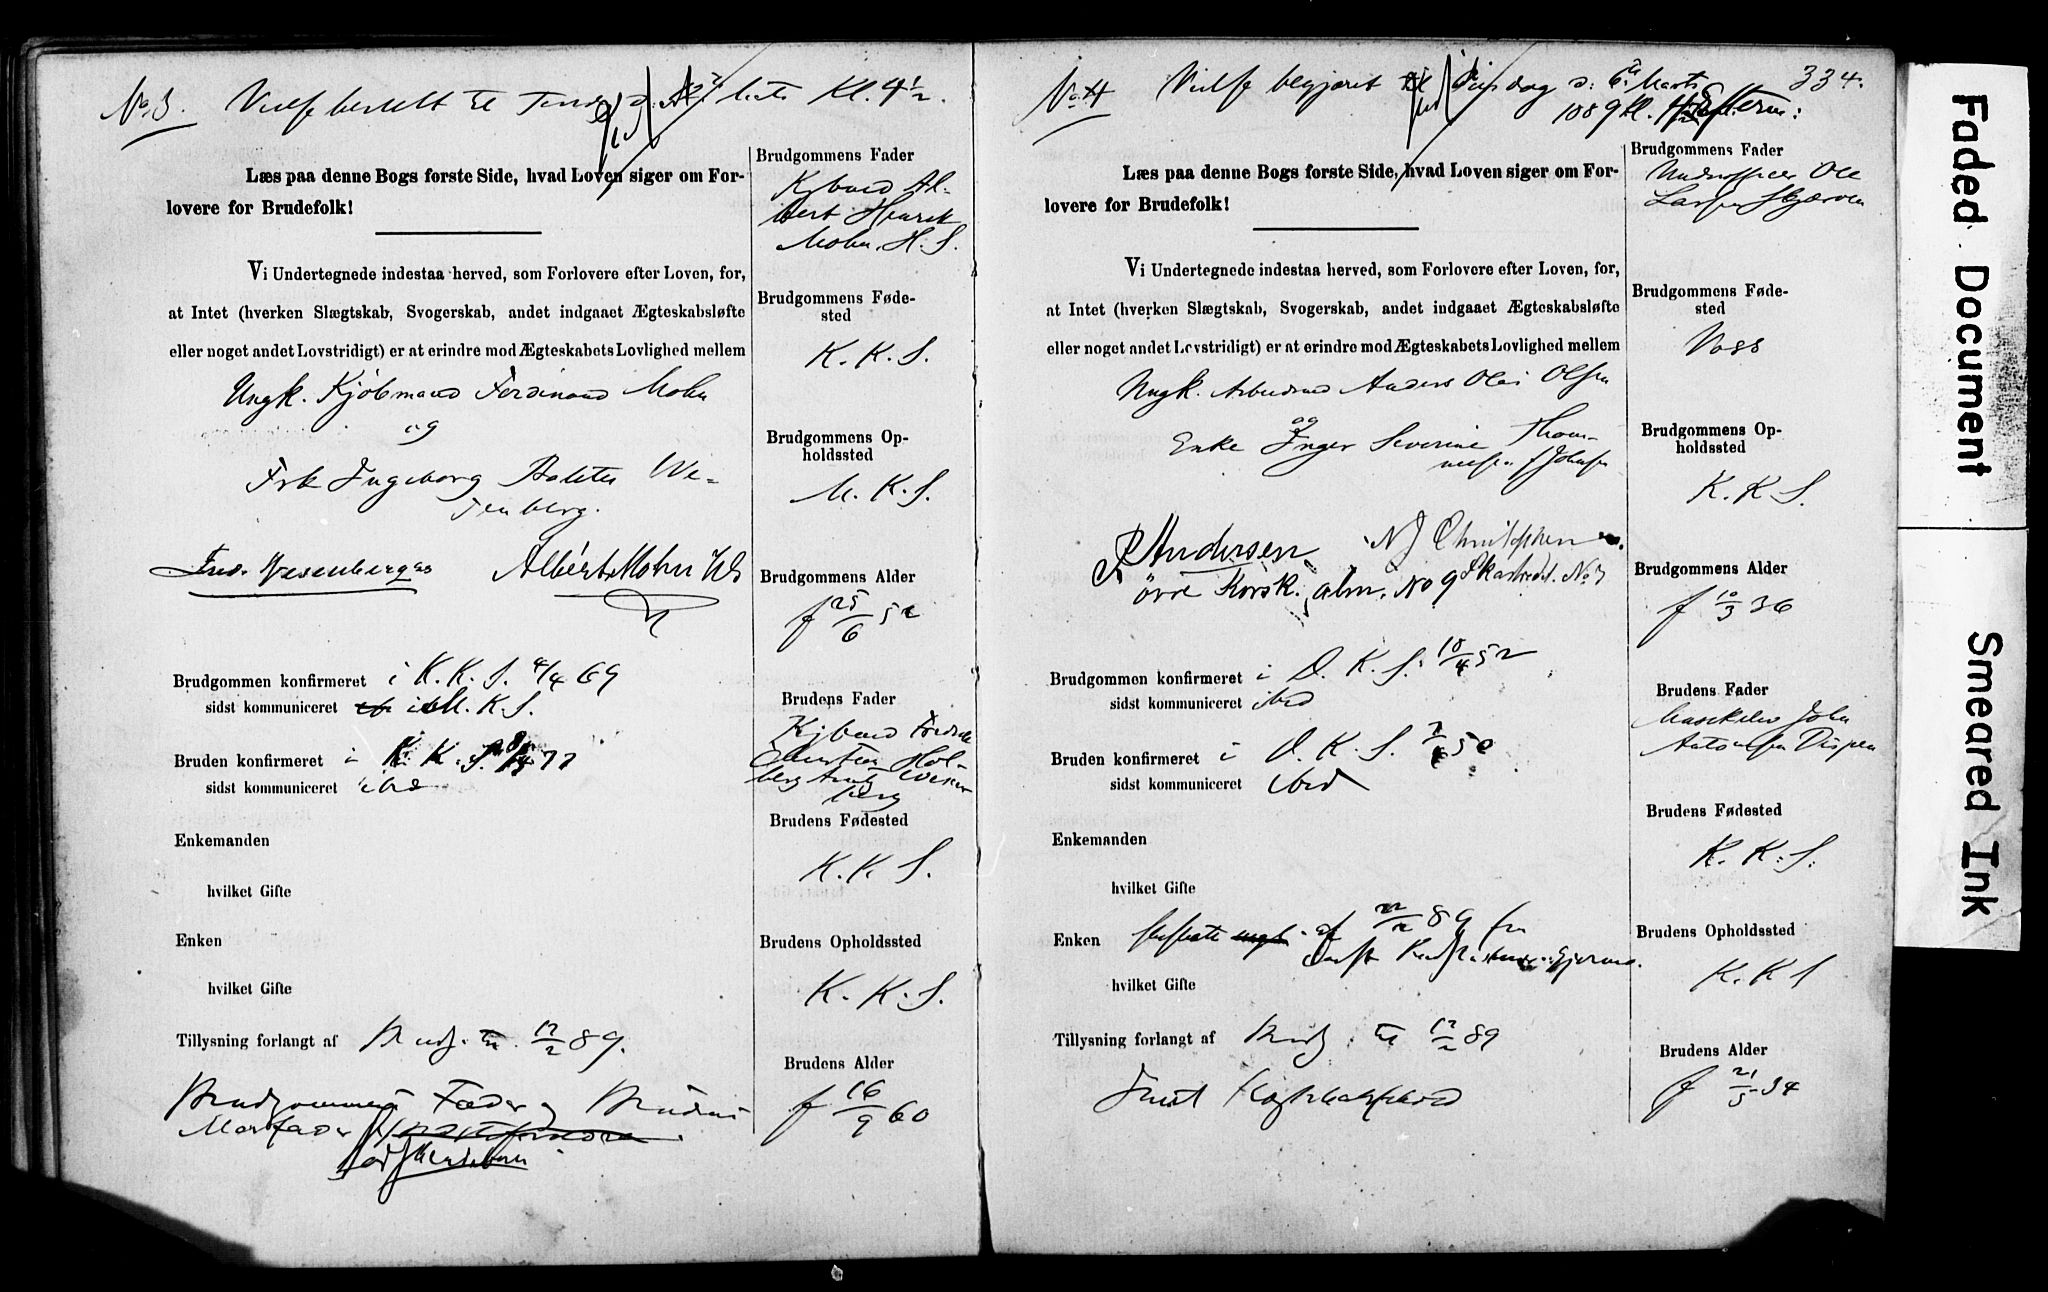 No 3. Vielse bestelt til Kl. 4½.
Læs paa denne Bogs første Side, hvad Loven siger om For-
lovere for Brudefolk!
Vi Undertegnede indestaa herved, som Forlovere efter Loven, for,
at Intet (hverken Slægtskab, Svogerskab, andet indgaaet Ægteskabsløfte
eller noget andet Lovstridigt) er at erindre mod Ægteskabets Lovlighed mellem
Ungk. Kjøbmand Ferdinand Mohn
og
Frk Ingeborg We-
senberg.
Albert Mohn
Brudgommen konfirmeret i K. K. S. 4/4 69
sidst kommuniceret i M. K. S.
Bruden konfirmeret i K. K. S. 77
sidst kommuniceret ibd
Enkemanden
hvilket Gifte
Enken
hvilket Gifte
Tillysning forlangt af Brudg. til 17/2 89.
Brudgommens Fader og Brudens
Morfader
Brudgommens Fader
Kjbmd Al-
bert Henrik
Mohn. H. S.
Brudgommens Føde-
sted
K. K. S.
Brudgommens Op-
holdssted
M. K. S.
Brudgommens Alder
f 25/6 52
Brudens Fader
Kjbmd Fredrik
Christian Hol-
berg Wesen-
berg
Brudens Fødested
K. K. S.
Brudens Opholdssted
K. K. S.
Brudens Alder
f 16/9 60
334.
No 4 Vielse begjæret til d: 6te Marts
1889 kl.
Læs paa denne Bogs første Side, hvad Loven siger om For-
lovere for Brudefolk!
Vi Undertegnede indestaa herved, som Forlovere efter Loven, for,
at Intet (hverken Slægtskab, Svogerskab, andet indgaaet Ægteskabsløfte
eller noget andet Lovstridigt) er at erindre mod Ægteskabets Lovlighed mellem
Ungk. Arbeidsmd Anders Olai Olsen
og
Enke Inger Severine Thom-
f Johnsen
Andersen N J Christophersen
øvre Korsk. alm. No 9 No 3
Brudgommen konfirmeret i D. K. S. 18/4 52
sidst kommuniceret ibid
Bruden konfirmeret i D. K. S. 50
sidst kommuniceret ibid
Enkemanden
hvilket Gifte
Enken Skifteatt af 22/2 89 fra
hvilket Gifte
Tillysning forlangt af Brudg. til 17/2 89
Brudgommens Fader
Underofficer Ole
Larsen
Brudgommens Føde-
sted
Voss
Brudgommens Op-
holdssted
K. K. S.
Brudgommens Alder
f 10/3 36
Brudens Fader
John
Antonsen
Brudens Fødested
K. K. S.
Brudens Opholdssted
K. K. S
Brudens Alder
f 21/5 34
Faded Document
Smeared Ink